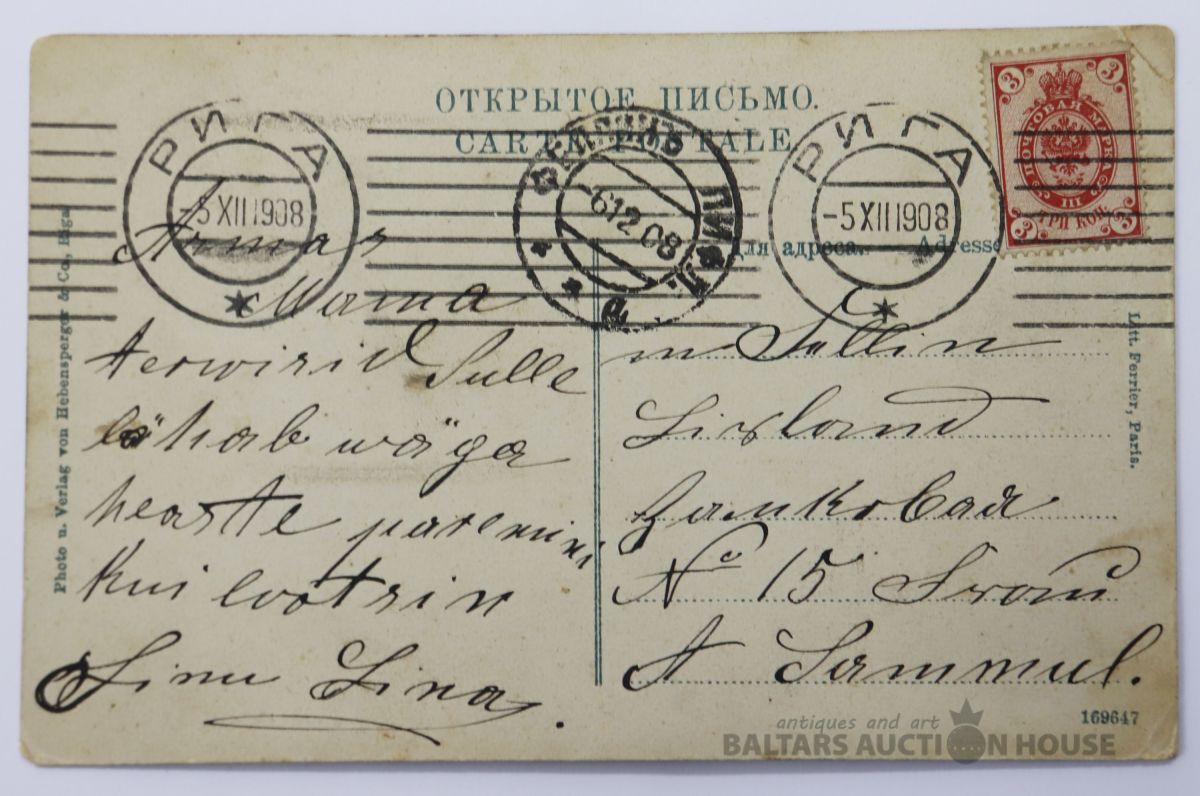 ОТКРЫТОЕ ПИСЬМО.
CARTE POSTALE
РИГА
-5 XII 1908
ФЕЛЛИНЪ ЛИФЛ.
-6 12 08
а
РИГА
-5 XII 1908
3 3
ПОЧТОВАЯ МАРКА
III
ТРИ КОП.
3 3
Для адреса. Adresse
Armas
Mama
terwisid Sulle
lähab wäga
heaste paremini
kui lootsin
Sinu Lina.
in Fellin
Livland
Замковая
No 15
A Sammul.
Photo u. Verlag von Hebensperger & Co., Riga
Litt. Ferrier, Paris.
169647
antiques and art
BALTARS AUCTION HOUSE